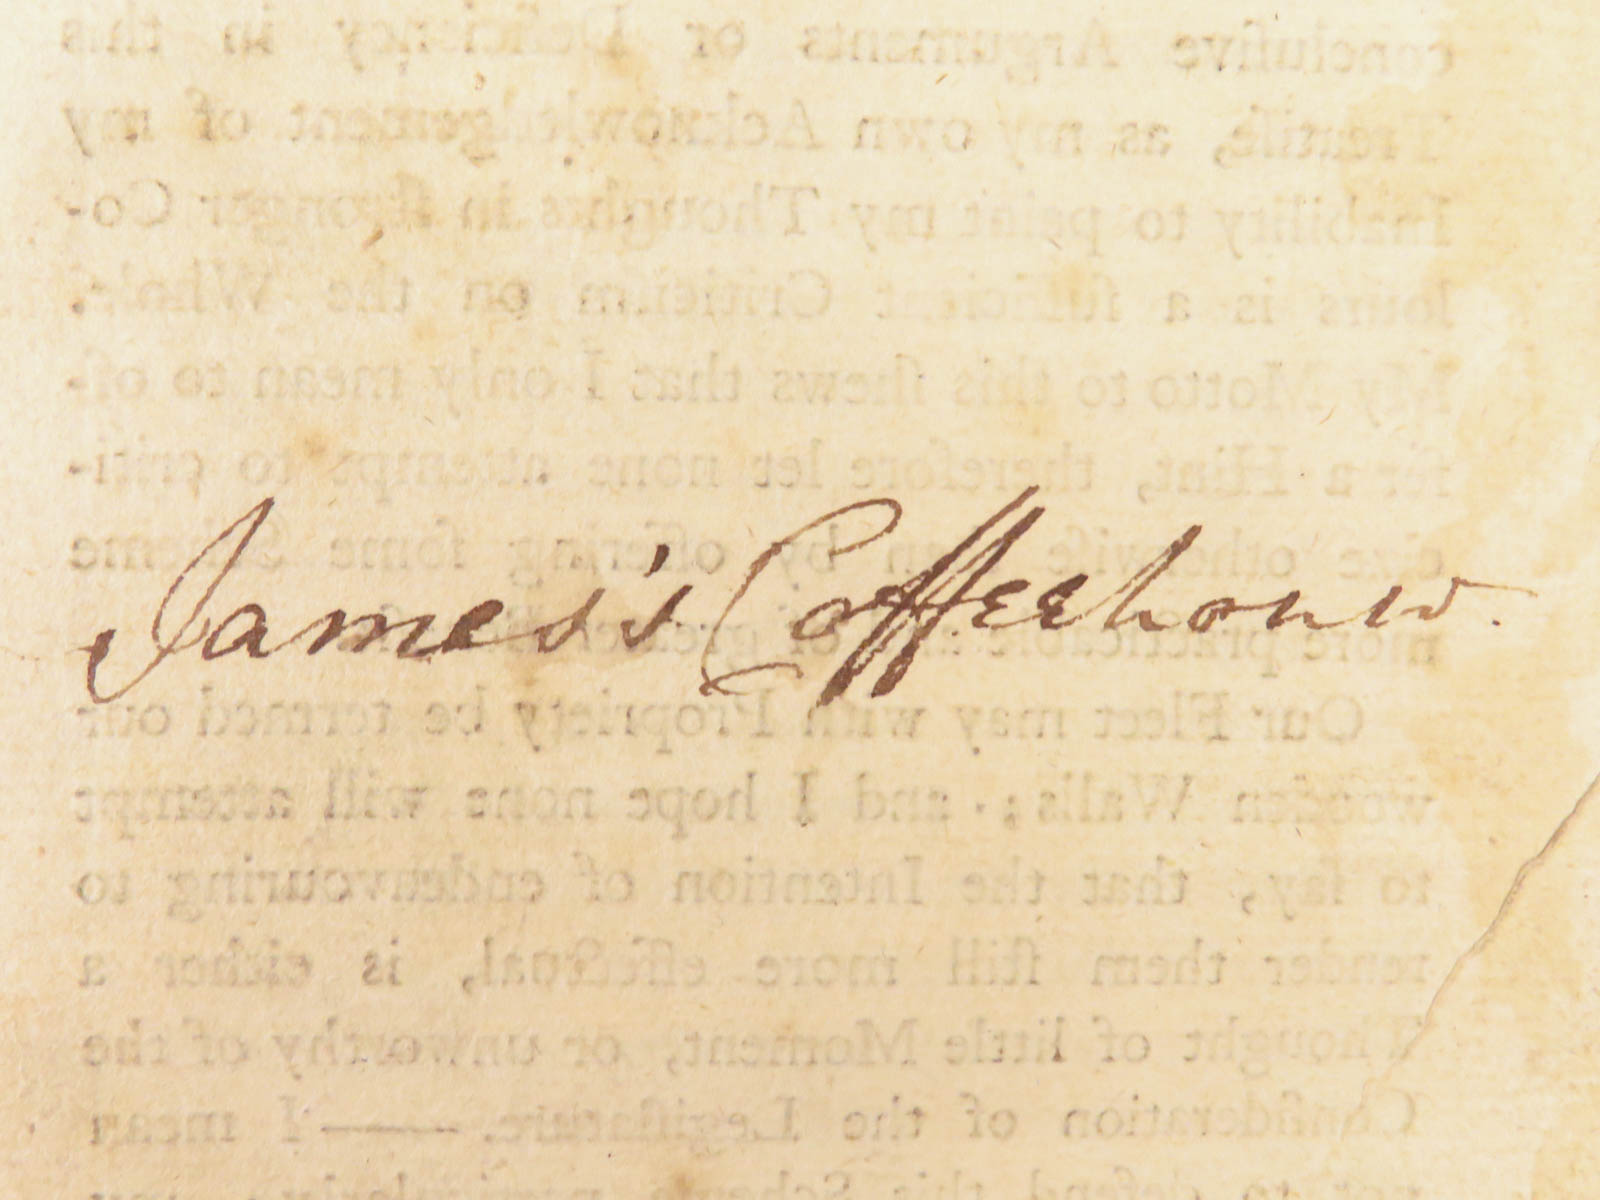 concluſive Arguments or Deficiency in this
Treatiſe, as my own Acknowledgement of my
Inability to paint my Thoughts in ſtronger Co-
lours is a ſufficient Criticiſm on the Whole.
My Motto to this ſhews that I only mean to of-
fer a Hint, therefore let none attempt to criti-
cize otherwiſe than by offering ſome Scheme
James's Coffeehouse.
more practicable
Our Fleet may with Propriety be termed our
wooden Walls; and I hope none will attempt
to ſay, that the Intention of endeavouring to
render them ſtill more effectual, is either a
Thought of little Moment, or unworthy of the
Conſideration of the Legiſlature. — I mean
not to defend this Scheme